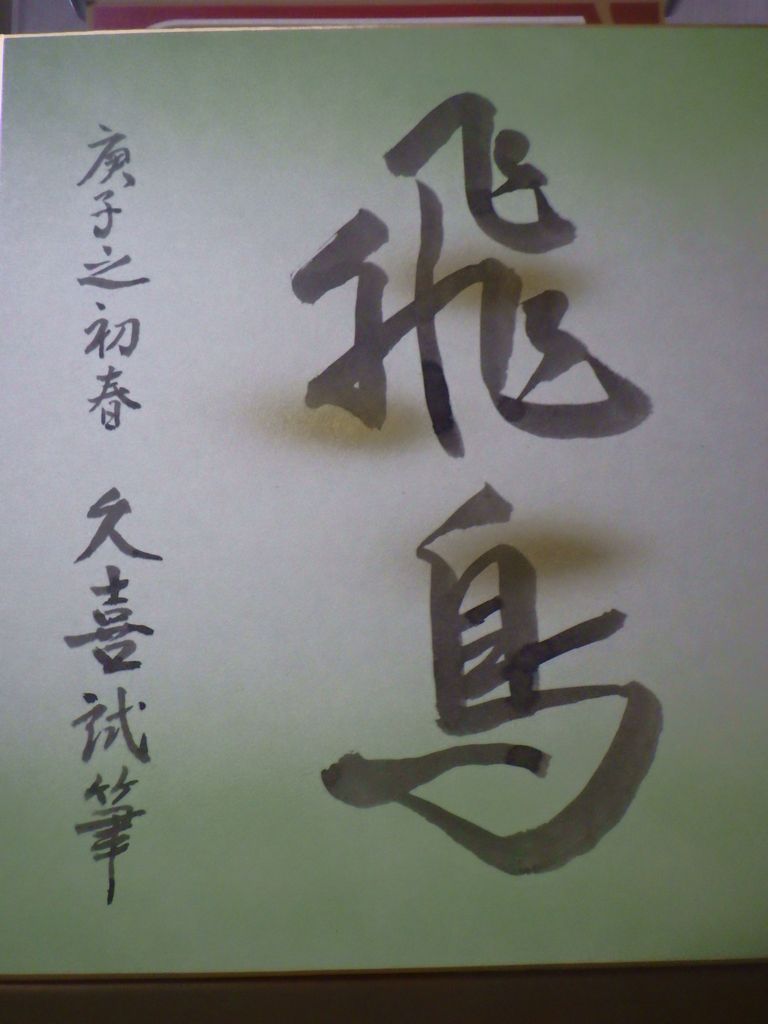 飛鳥
庚子之初春 久喜試筆